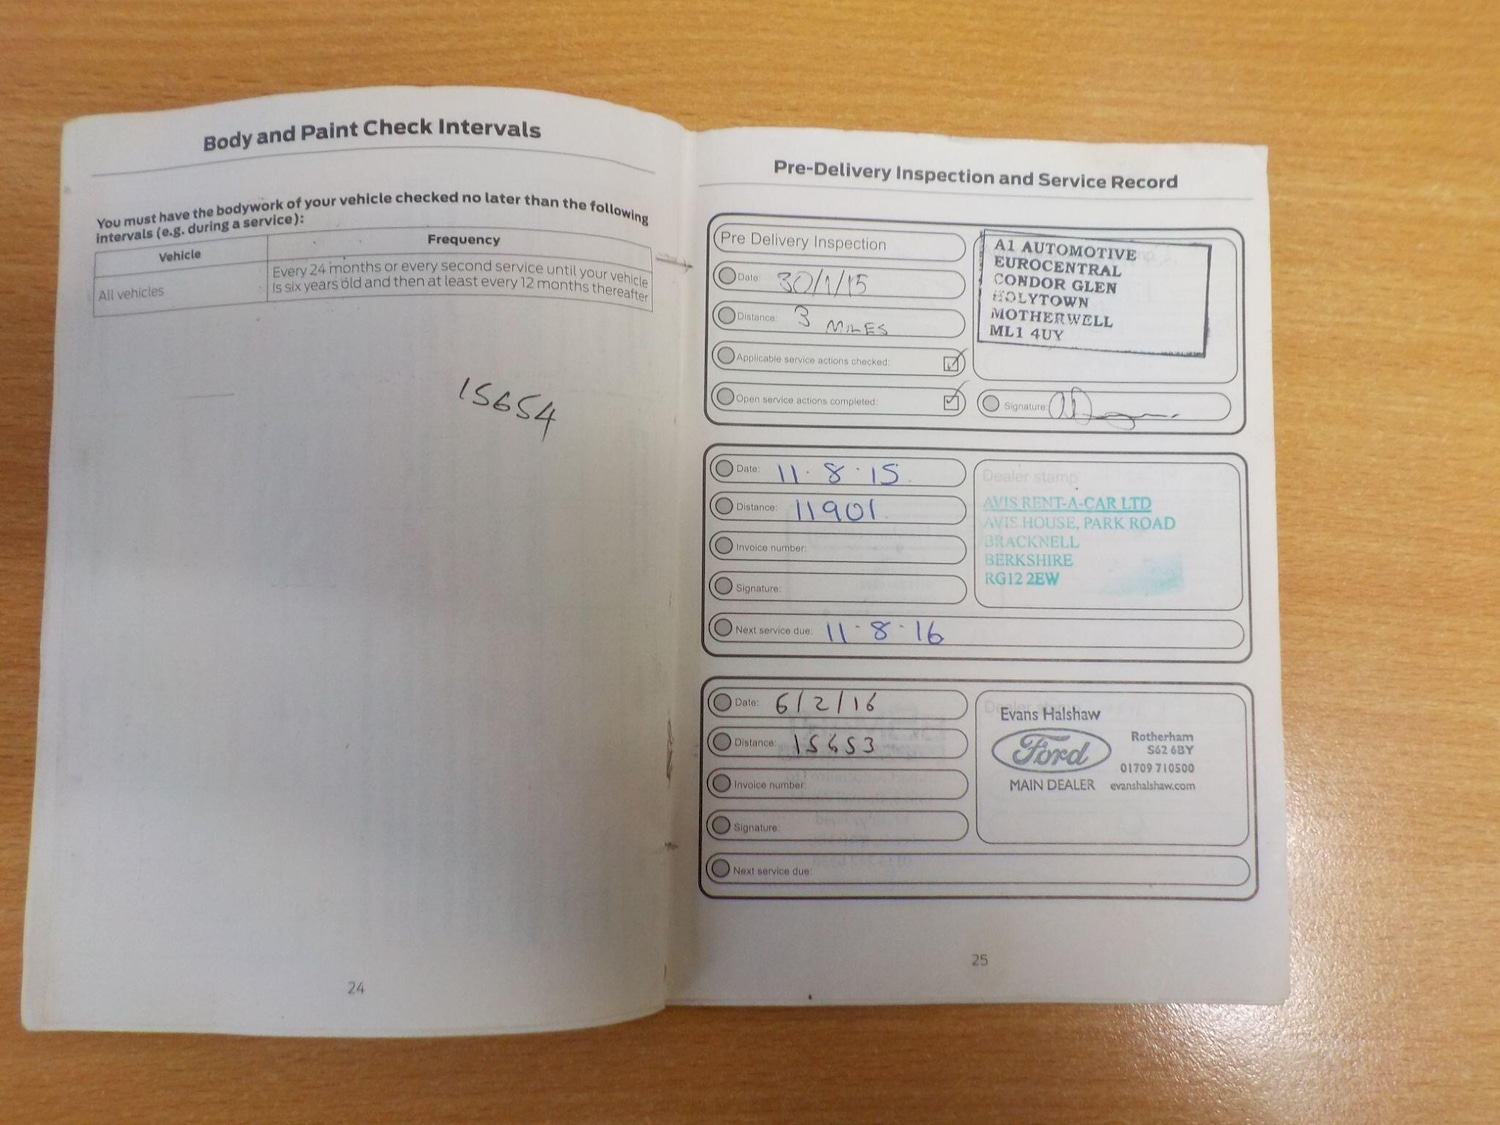 Body and Paint Check Intervals
You must have the bodywork of your vehicle checked no later than the following
intervals (e.g. during a service):
Vehicle
Frequency
All vehicles
Every 24 months or every second service until your vehicle
is six years old and then at least every 12 months thereafter
15654
24
Pre-Delivery Inspection and Service Record
Pre Delivery Inspection
Date: 30/1/15
Distance: 3 MILES
Applicable service actions checked:
Open service actions completed:
A1 AUTOMOTIVE
EUROCENTRAL
CONDOR GLEN
HOLYTOWN
MOTHERWELL
ML1 4UY
Signature:
Date: 11·8·15
Distance: 11901
Invoice number:
Signature:
Next service due: 11·8·16
Dealer stamp
AVIS RENT-A-CAR LTD
AVIS HOUSE, PARK ROAD
BRACKNELL
BERKSHIRE
RG12 2EW
Date: 6/2/16
Distance: 15653
Invoice number:
Signature:
Next service due:
Evans Halshaw
Ford
MAIN DEALER
Rotherham
S62 6BY
01709 710500
evanshalshaw.com
25